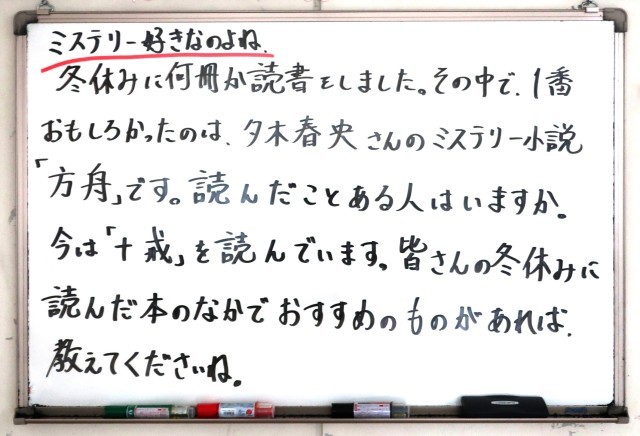 ミステリー好きなのよね.
冬休みに何冊か読書をしました。その中で、1番
おもしろかったのは、夕木春央さんのミステリー小説
「方舟」です。読んだことある人はいますか。
今は「十戒」を読んでいます。皆さんの冬休みに
読んだ本のなかでおすすめのものがあれば、
教えてくださいね。